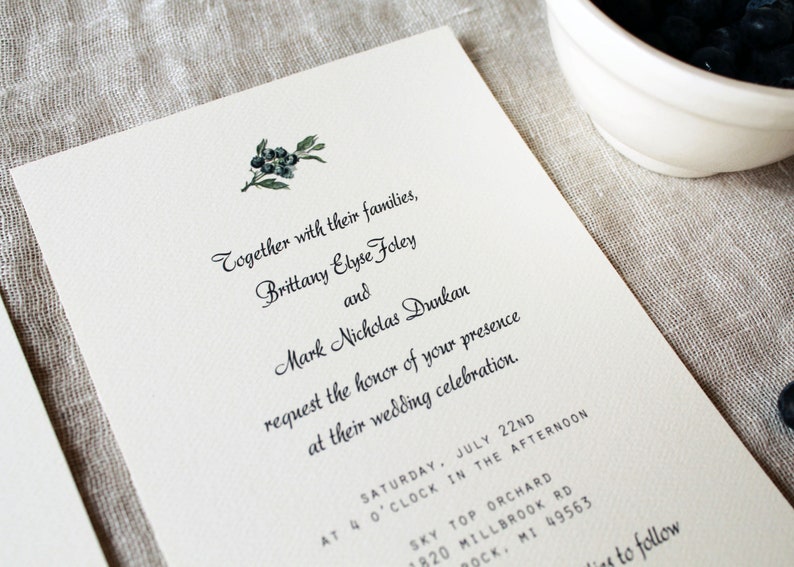 Together with their families,
Brittany Elyse Foley
and
Mark Nicholas Dunkan
request the honor of your presence
at their wedding celebration.
SATURDAY, JULY 22ND
AT 4 O'CLOCK IN THE AFTERNOON
SKY TOP ORCHARD
1820 MILLBROOK RD
ROCK, MI 49563
to follow